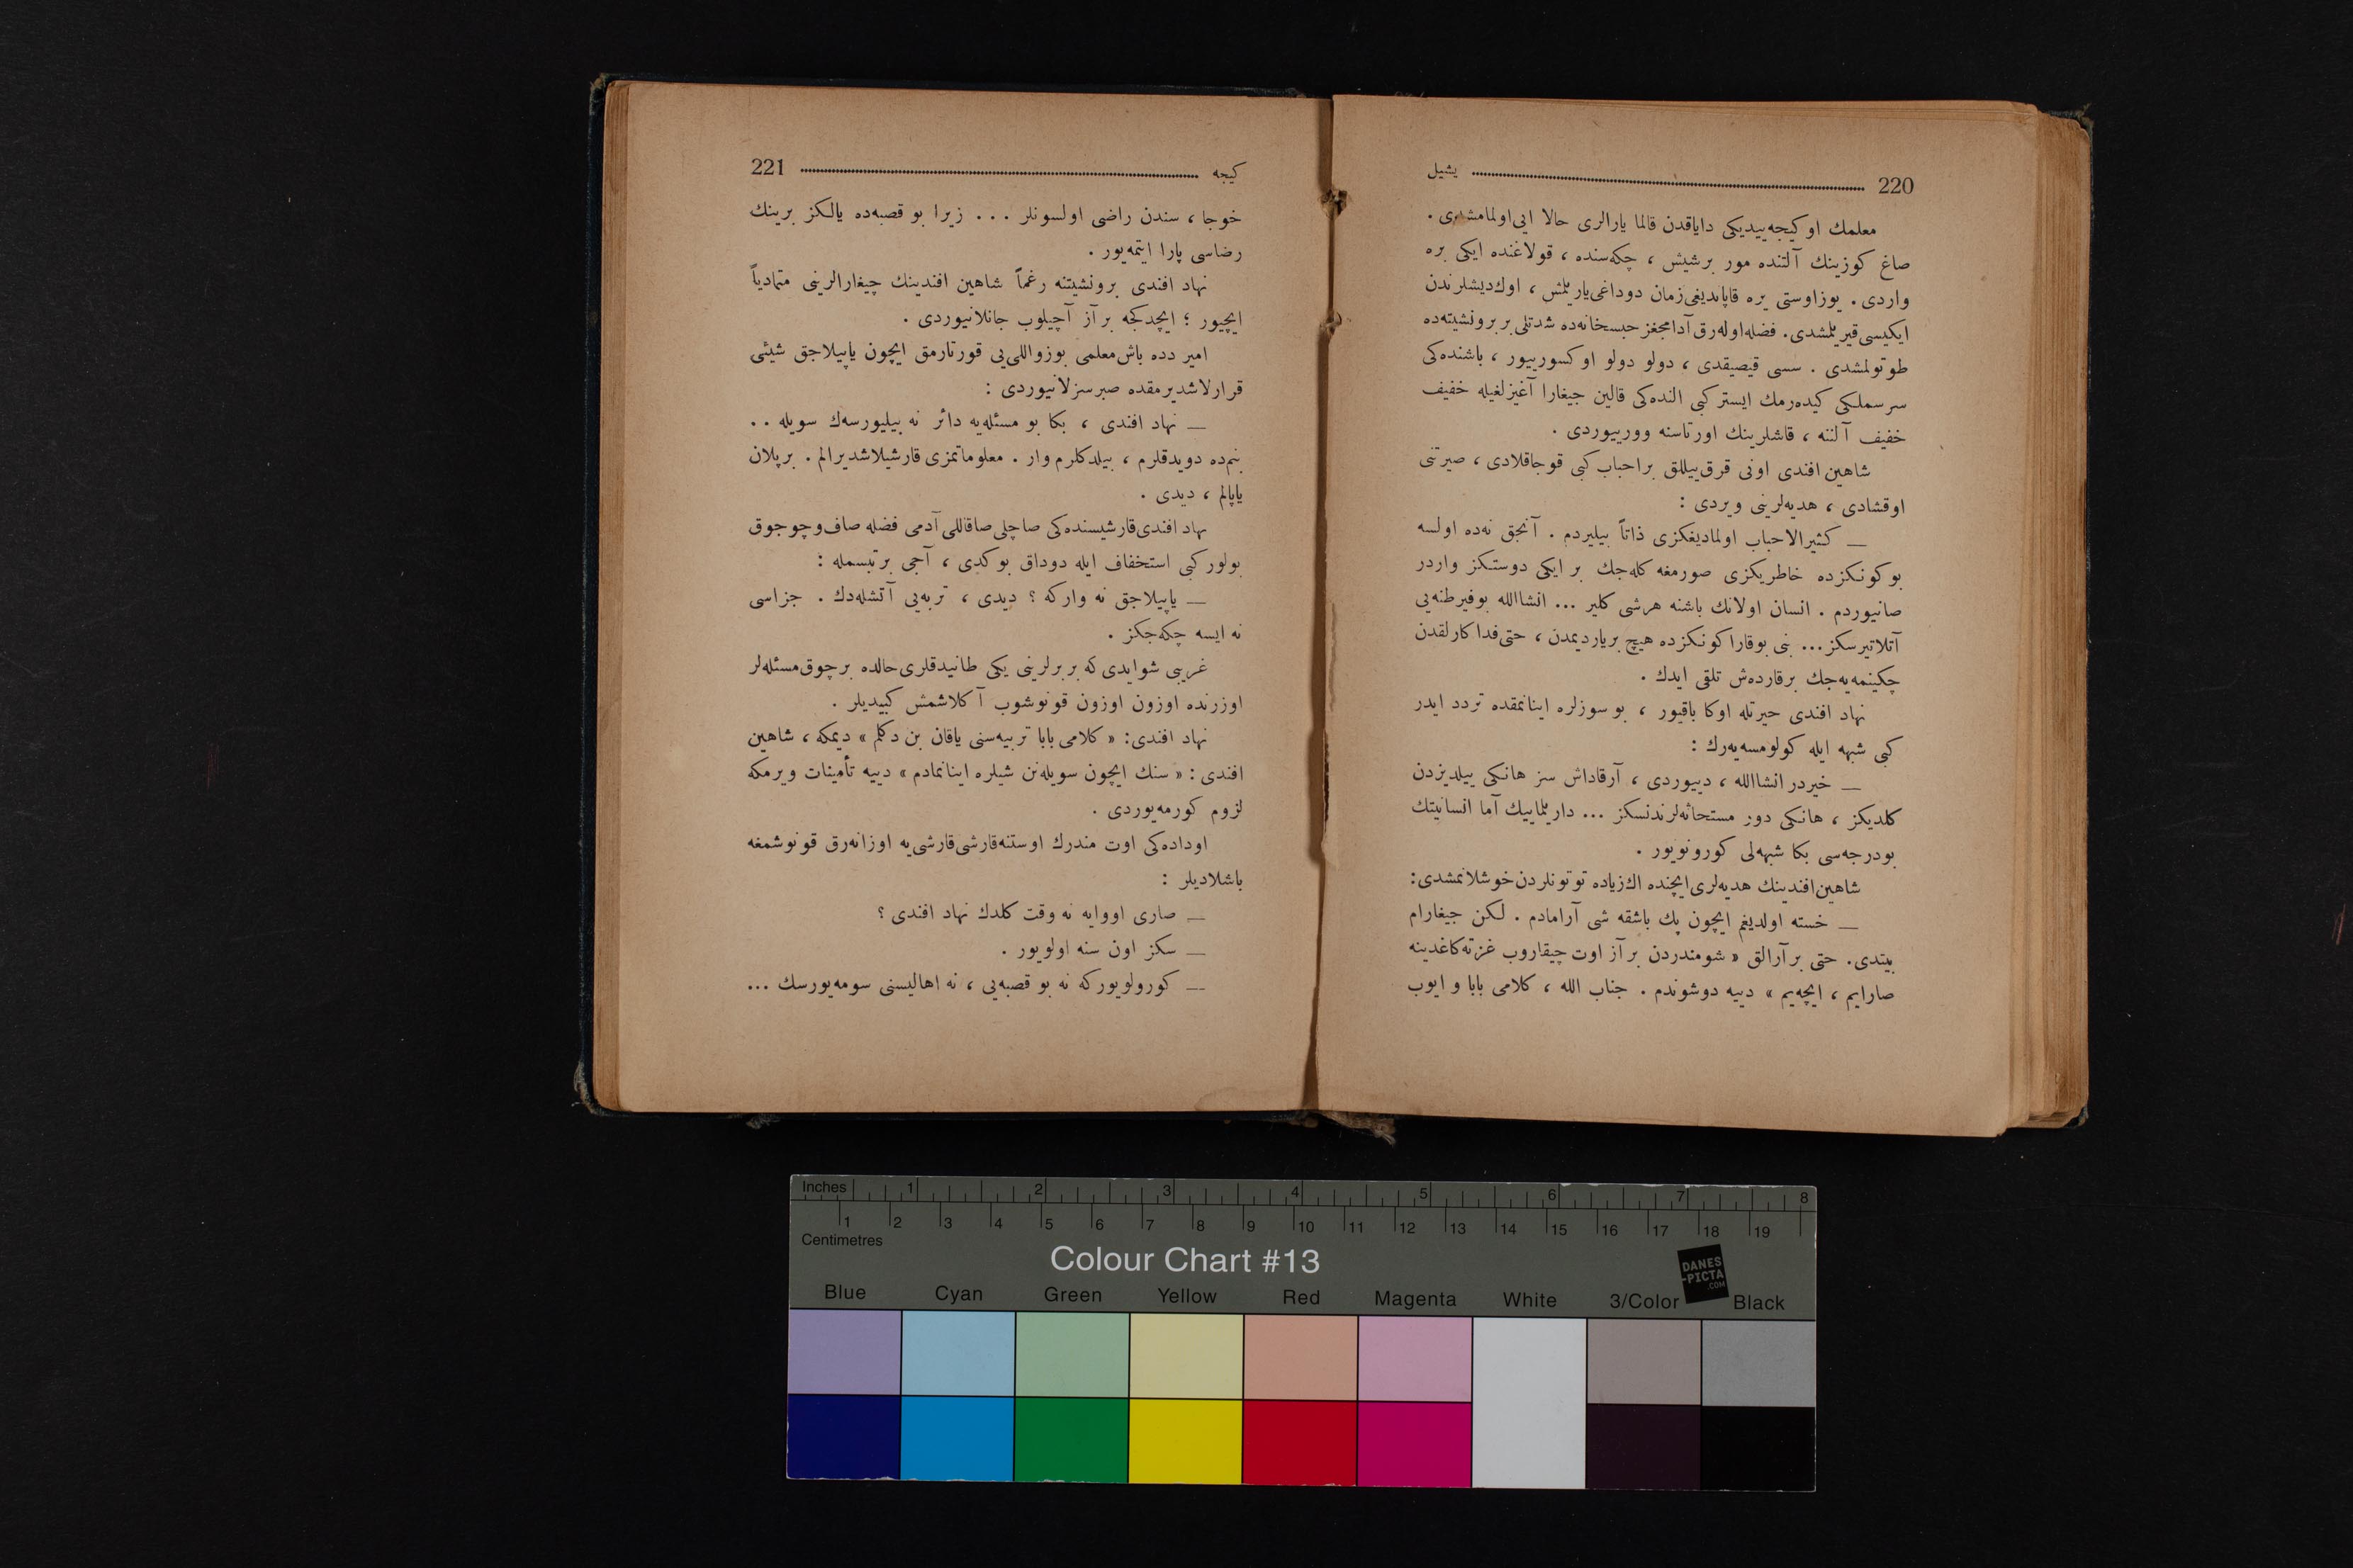 220 يشيل
معلمك او كيجه ييديكى داياقدن قالما يارالرى حالا ايى اولمامشدى .
صاغ كوزينك آلتنده مور برشيش ، چكه‌سنده ، قولاغنده ايكى بره
واردى . يوزاوستى يره قاپانديغى زمان دوداغى ياريلمش ، اوك ديشلرندن
ايكيسى قيريلمشدى . فضله اوله‌رق آدامجغز حبسخانه‌ده شدتلى بر برونشيته‌ده
طوتولمشدى . سسى قيصيقدى ، دولو دولو اوكسورييور ، باشنده‌كى
سرسملكى كيده‌رمك ايستر كبى النده‌كى قالين جيغارا آغيزلغيله خفيف
خفيف آلننه ، قاشلرينك اورتاسنه وورييوردى .
شاهين افندى اونى قرق ييللق براحباب كبى قوجاقلادى ، صيرتنى
اوقشادى ، هديه‌لرينى ويردى :
— كثيرالاحباب اولماديغكزى ذاتاً بيليردم . آنجق نه‌ده اولسه
بو كونكزده خاطريكزى صورمغه كله‌جك بر ايكى دوستكز واردر
صانيوردم . انسان اولانك باشنه هرشى كلير ... انشاالله بوفيرطنه‌يى
آتلاتيرسكز ... بنى بوقارا كونكزده هيچ برياردیمدن ، حتى فداكارلقدن
چكينمه‌يه‌جك برقارده‌ش تلقى ايدك .
نهاد افندى حيرتله اوكا باقيور ، بو سوزلره اينانمقده تردد ايدر
كبى شبهه ايله كولومسه‌يه‌رك :
— خيردر انشاالله ، دييوردى ، آرقاداش سز هانكى ييلديزدن
كلديكز ، هانكى دور مستحاثه‌لرندنسكز ... داريلماييك آما انسانيتك
بودرجه‌سى بكا شبهه‌لى كورونويور .
شاهين افندينك هديه‌لرى ايچنده اك زياده توتونلردن خوشلانمشدى :
— خسته اولديغم ايچون پك باشقه شى آرامادم . لكن جيغارام
بيتدى . حتى بر آرالق « شو مندردن بر آز اوت چيقاروب غزته كاغدينه
صارايم ، ايچه‌يم » دييه دوشوندم . جناب الله ، كلامى بابا و ايوب
كيجه 221
خوجا ، سندن راضى اولسونلر ... زيرا بو قصبه‌ده يالكز برينك
رضاسى پارا ايتمه‌يور .
نهاد افندى برونشيتنه رغماً شاهين افندينك چيغارالرينى متمادياً
ايچيور ؛ ايچدكجه بر آز آچيلوب جانلانيوردى .
امير دده باش معلمى بوزواللى‌يى قورتارمق ايچون ياپيلاجق شيئى
قرارلاشديرمقده صبرسزلانيوردى :
— نهاد افندى ، بكا بو مسئله‌يه دائر نه بيليورسه‌ك سويله ..
بنم‌ده دويدقلرم ، بيلدكلرم وار . معلوماتمزى قارشيلاشديرالم . برپلان
ياپالم ، ديدى .
نهاد افندى قارشيسنده‌كى صاچلى صاقاللى آدمى فضله صاف و چوجوق
بولور كبى استخفاف ايله دوداق بوكدى ، آجى برتبسمله :
— ياپيلاجق نه واركه ؟ ديدى ، تربه‌يى آتشله‌دك . جزاسى
نه ايسه چكه‌جكز .
غريبى شو ايدى كه بربرلرينى يكى طانيدقلرى حالده برچوق مسئله‌لر
اوزرنده اوزون اوزون قونوشوب آكلاشمش كبيديلر .
نهاد افندى : « كلامى بابا تربيه‌سنى ياقان بن دكلم » ديمكه ، شاهين
افندى : « سنك ايچون سويله‌نن شيلره اينانمادم » دييه تأمينات ويرمكه
لزوم كورمه‌يوردى .
اوداده‌كى اوت مندرك اوستنه قارشى قارشى‌يه اوزانه‌رق قونوشمغه
باشلاديلر :
— صارى اووايه نه وقت كلدك نهاد افندى ؟
— سكز اون سنه اولويور .
— كورولويوركه نه بو قصبه‌يى ، نه اهاليسنى سومه‌يورسك ...
Inches 1 2 3 4 5 6 7 8
1 2 3 4 5 6 7 8 9 10 11 12 13 14 15 16 17 18 19
Centimetres
Colour Chart #13
DANES
-PICTA
.COM
Blue Cyan Green Yellow Red Magenta White 3/Color Black